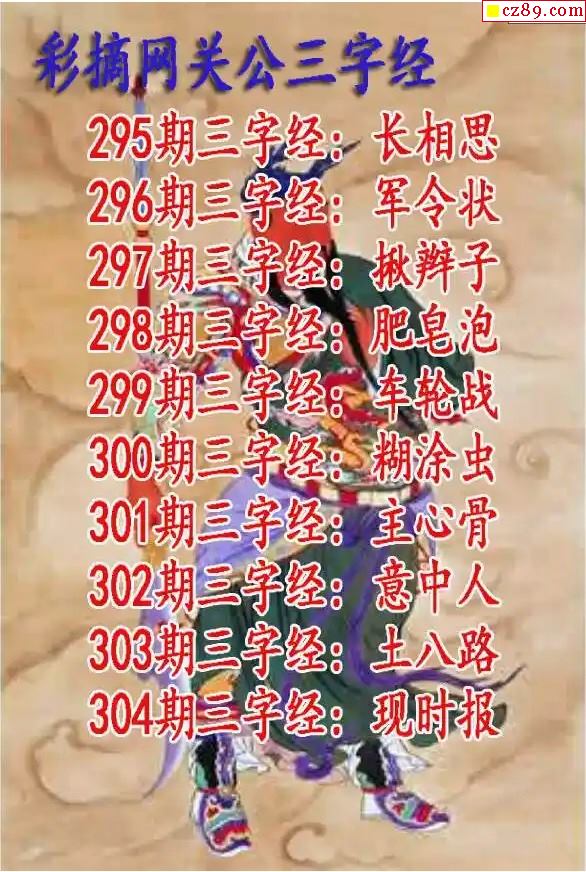 cz89.com
彩摘网关公三字经
295期三字经：长相思
296期三字经：军令状
297期三字经：揪辫子
298期三字经：肥皂泡
299期三字经：车轮战
300期三字经：糊涂虫
301期三字经：主心骨
302期三字经：意中人
303期三字经：土八路
304期三字经：现时报